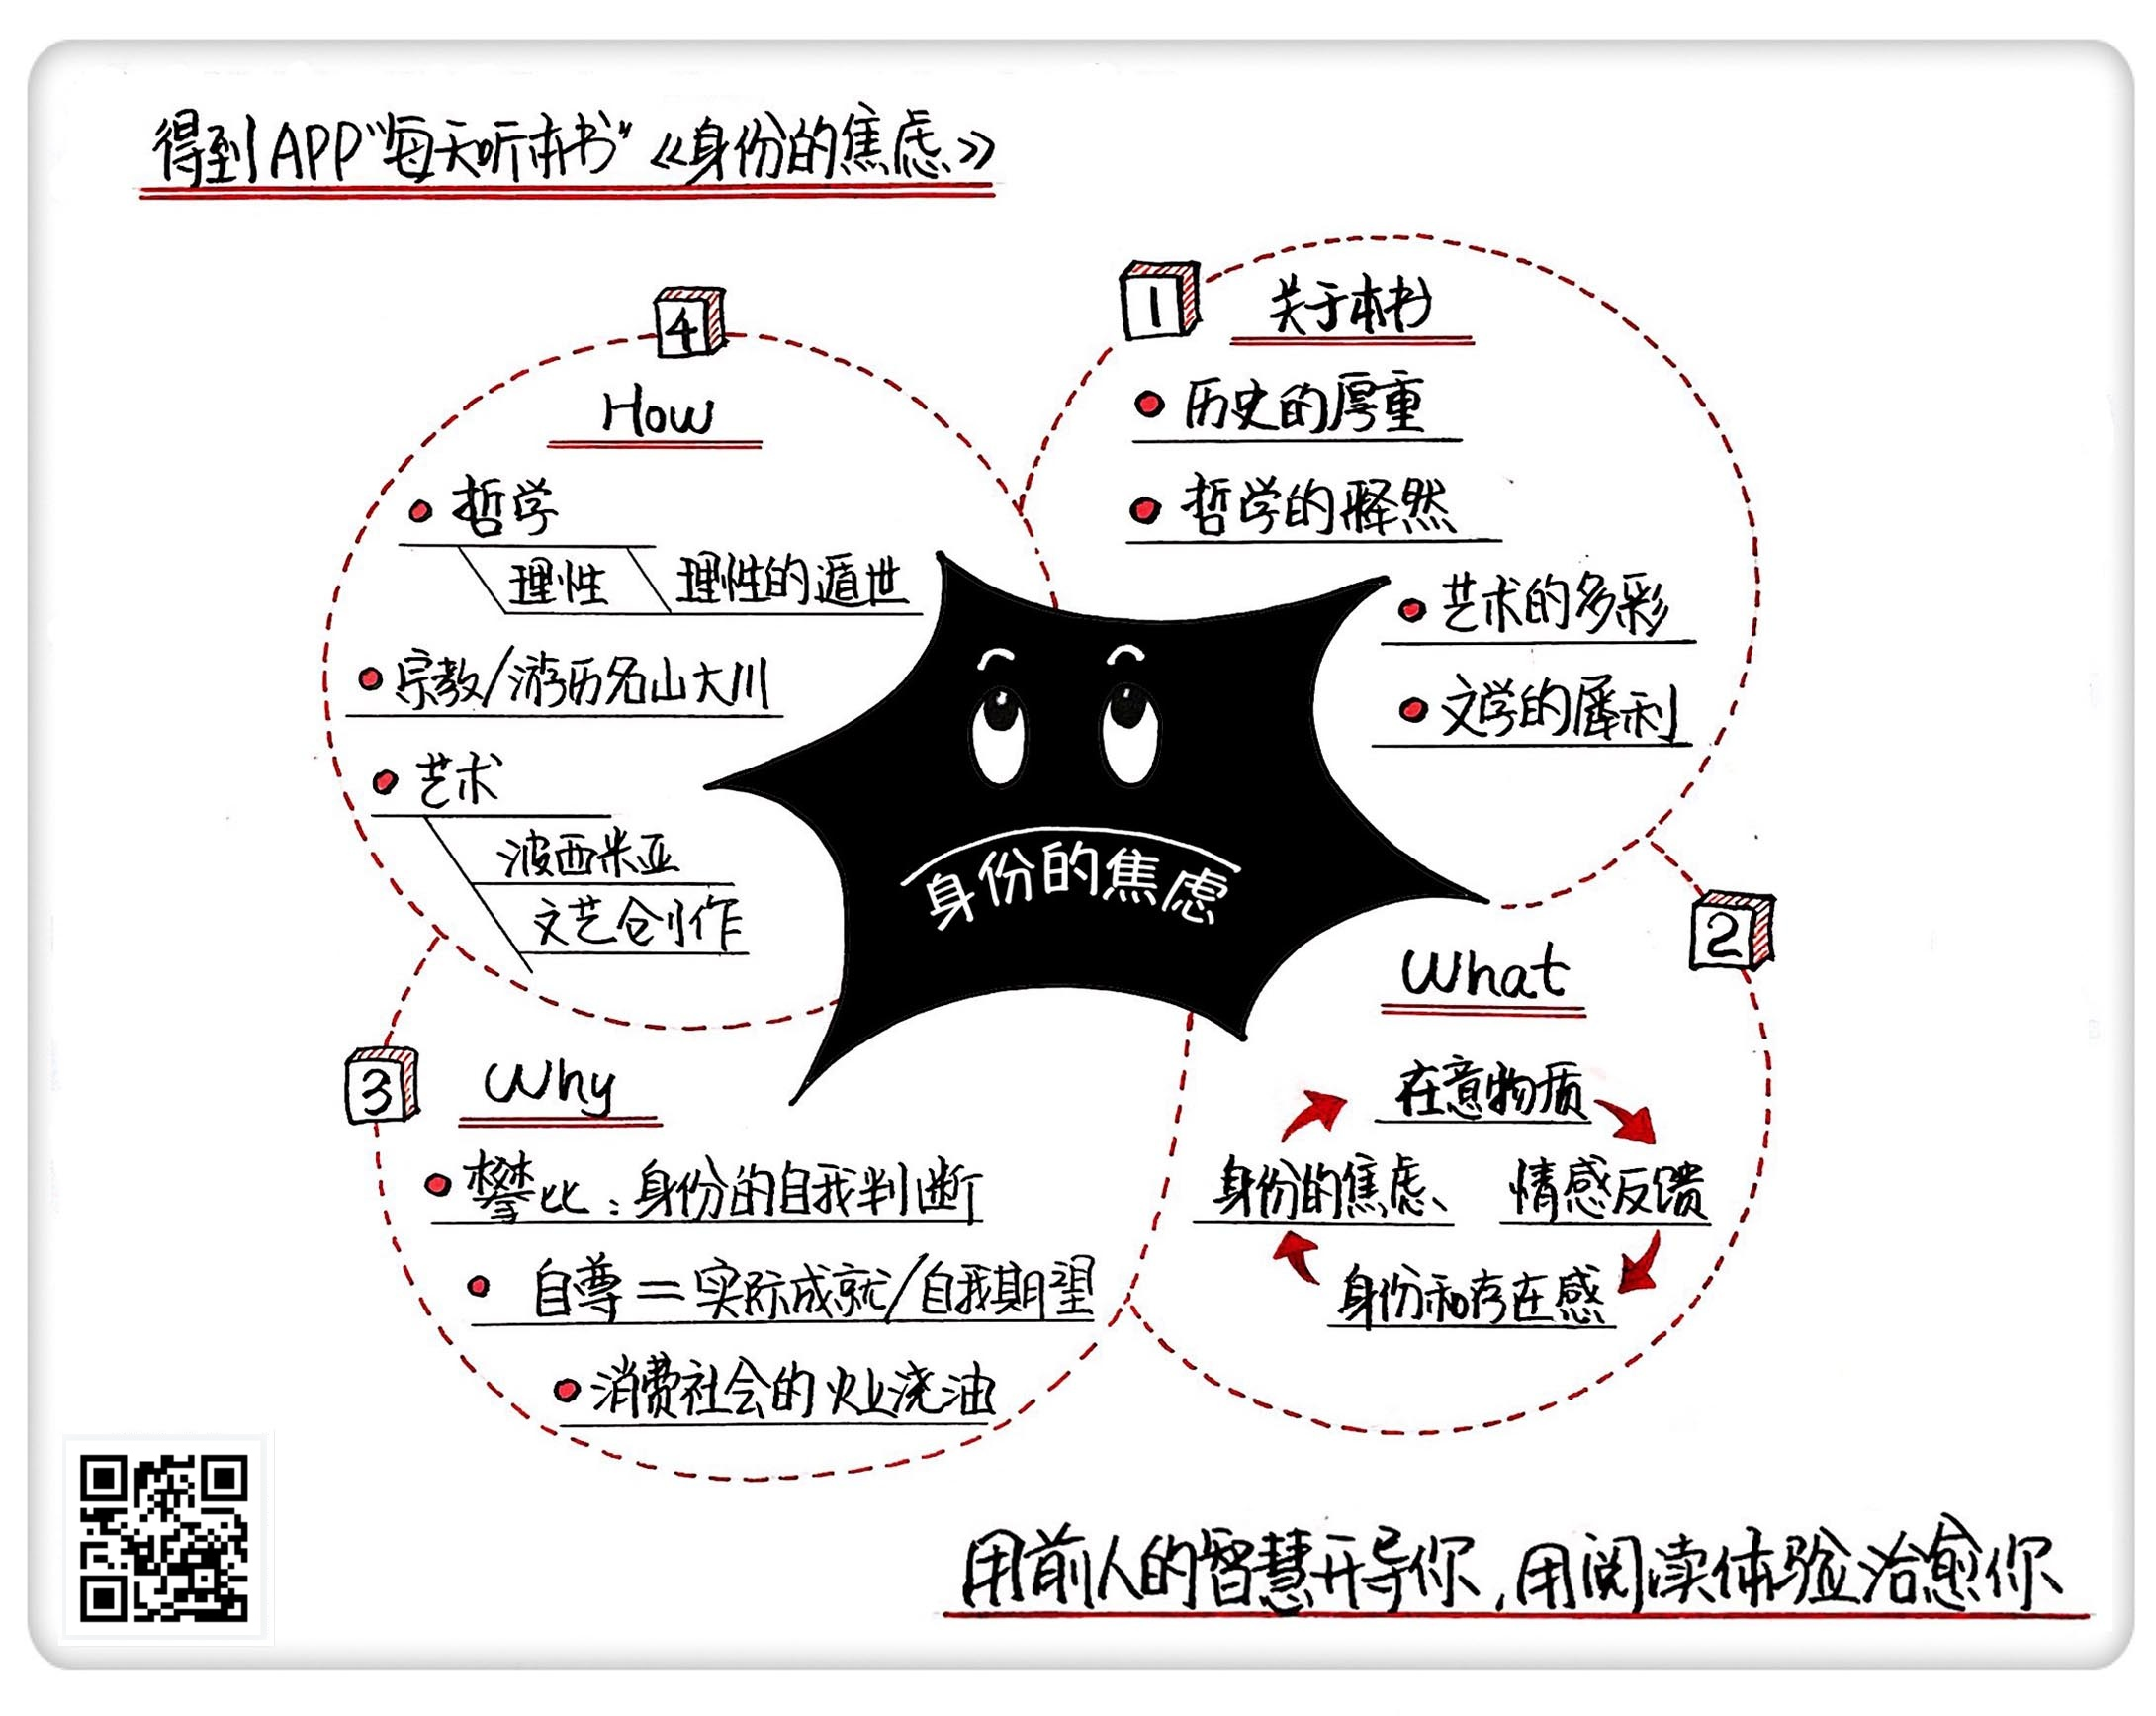 得到APP"每天听本书"《身份的焦虑》
1
关于本书
历史的厚重
哲学的释然
艺术的多彩
文学的犀利
2
What
在意物质
情感反馈
身份和存在感
身份的焦虑
3
Why
攀比：身份的自我判断
自尊＝实际成就/自我期望
消费社会的火上浇油
4
How
哲学
理性
理性的遁世
宗教/游历名山大川
艺术
波西米亚
文艺创作
身份的焦虑
用前人的智慧开导你，用阅读体验治愈你